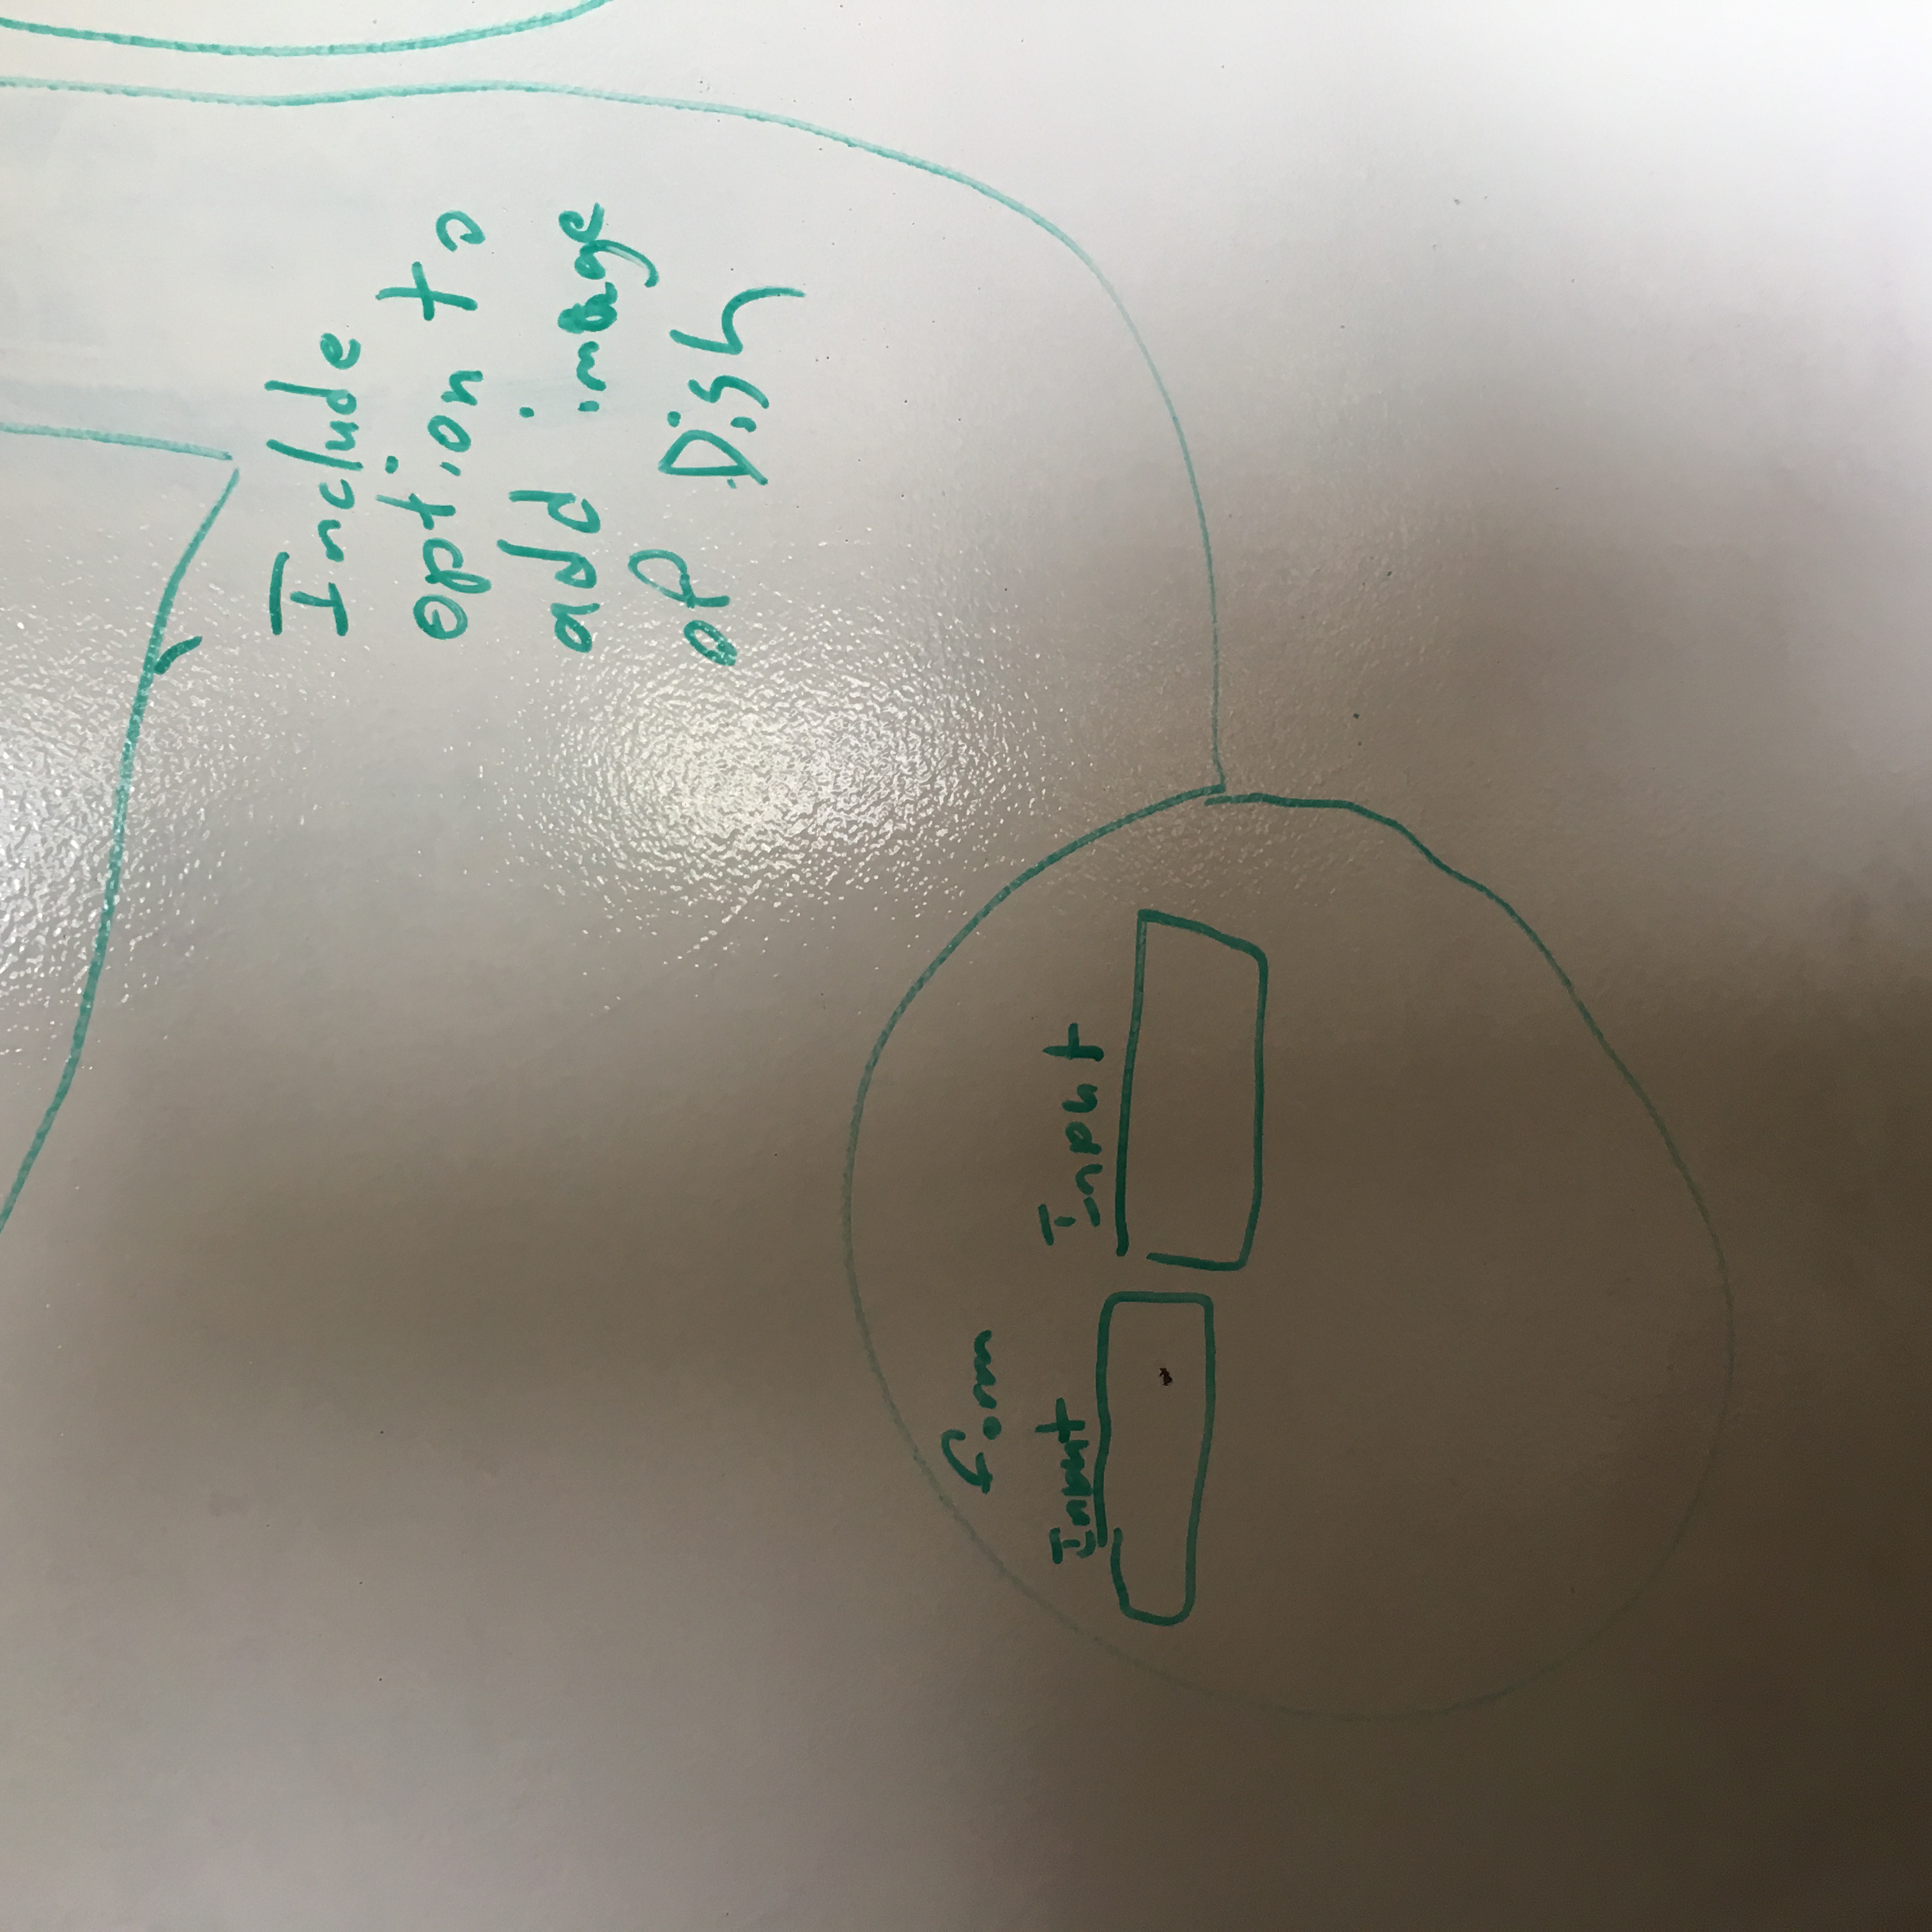 Include
option to
add image
of Dish
form
Input Input